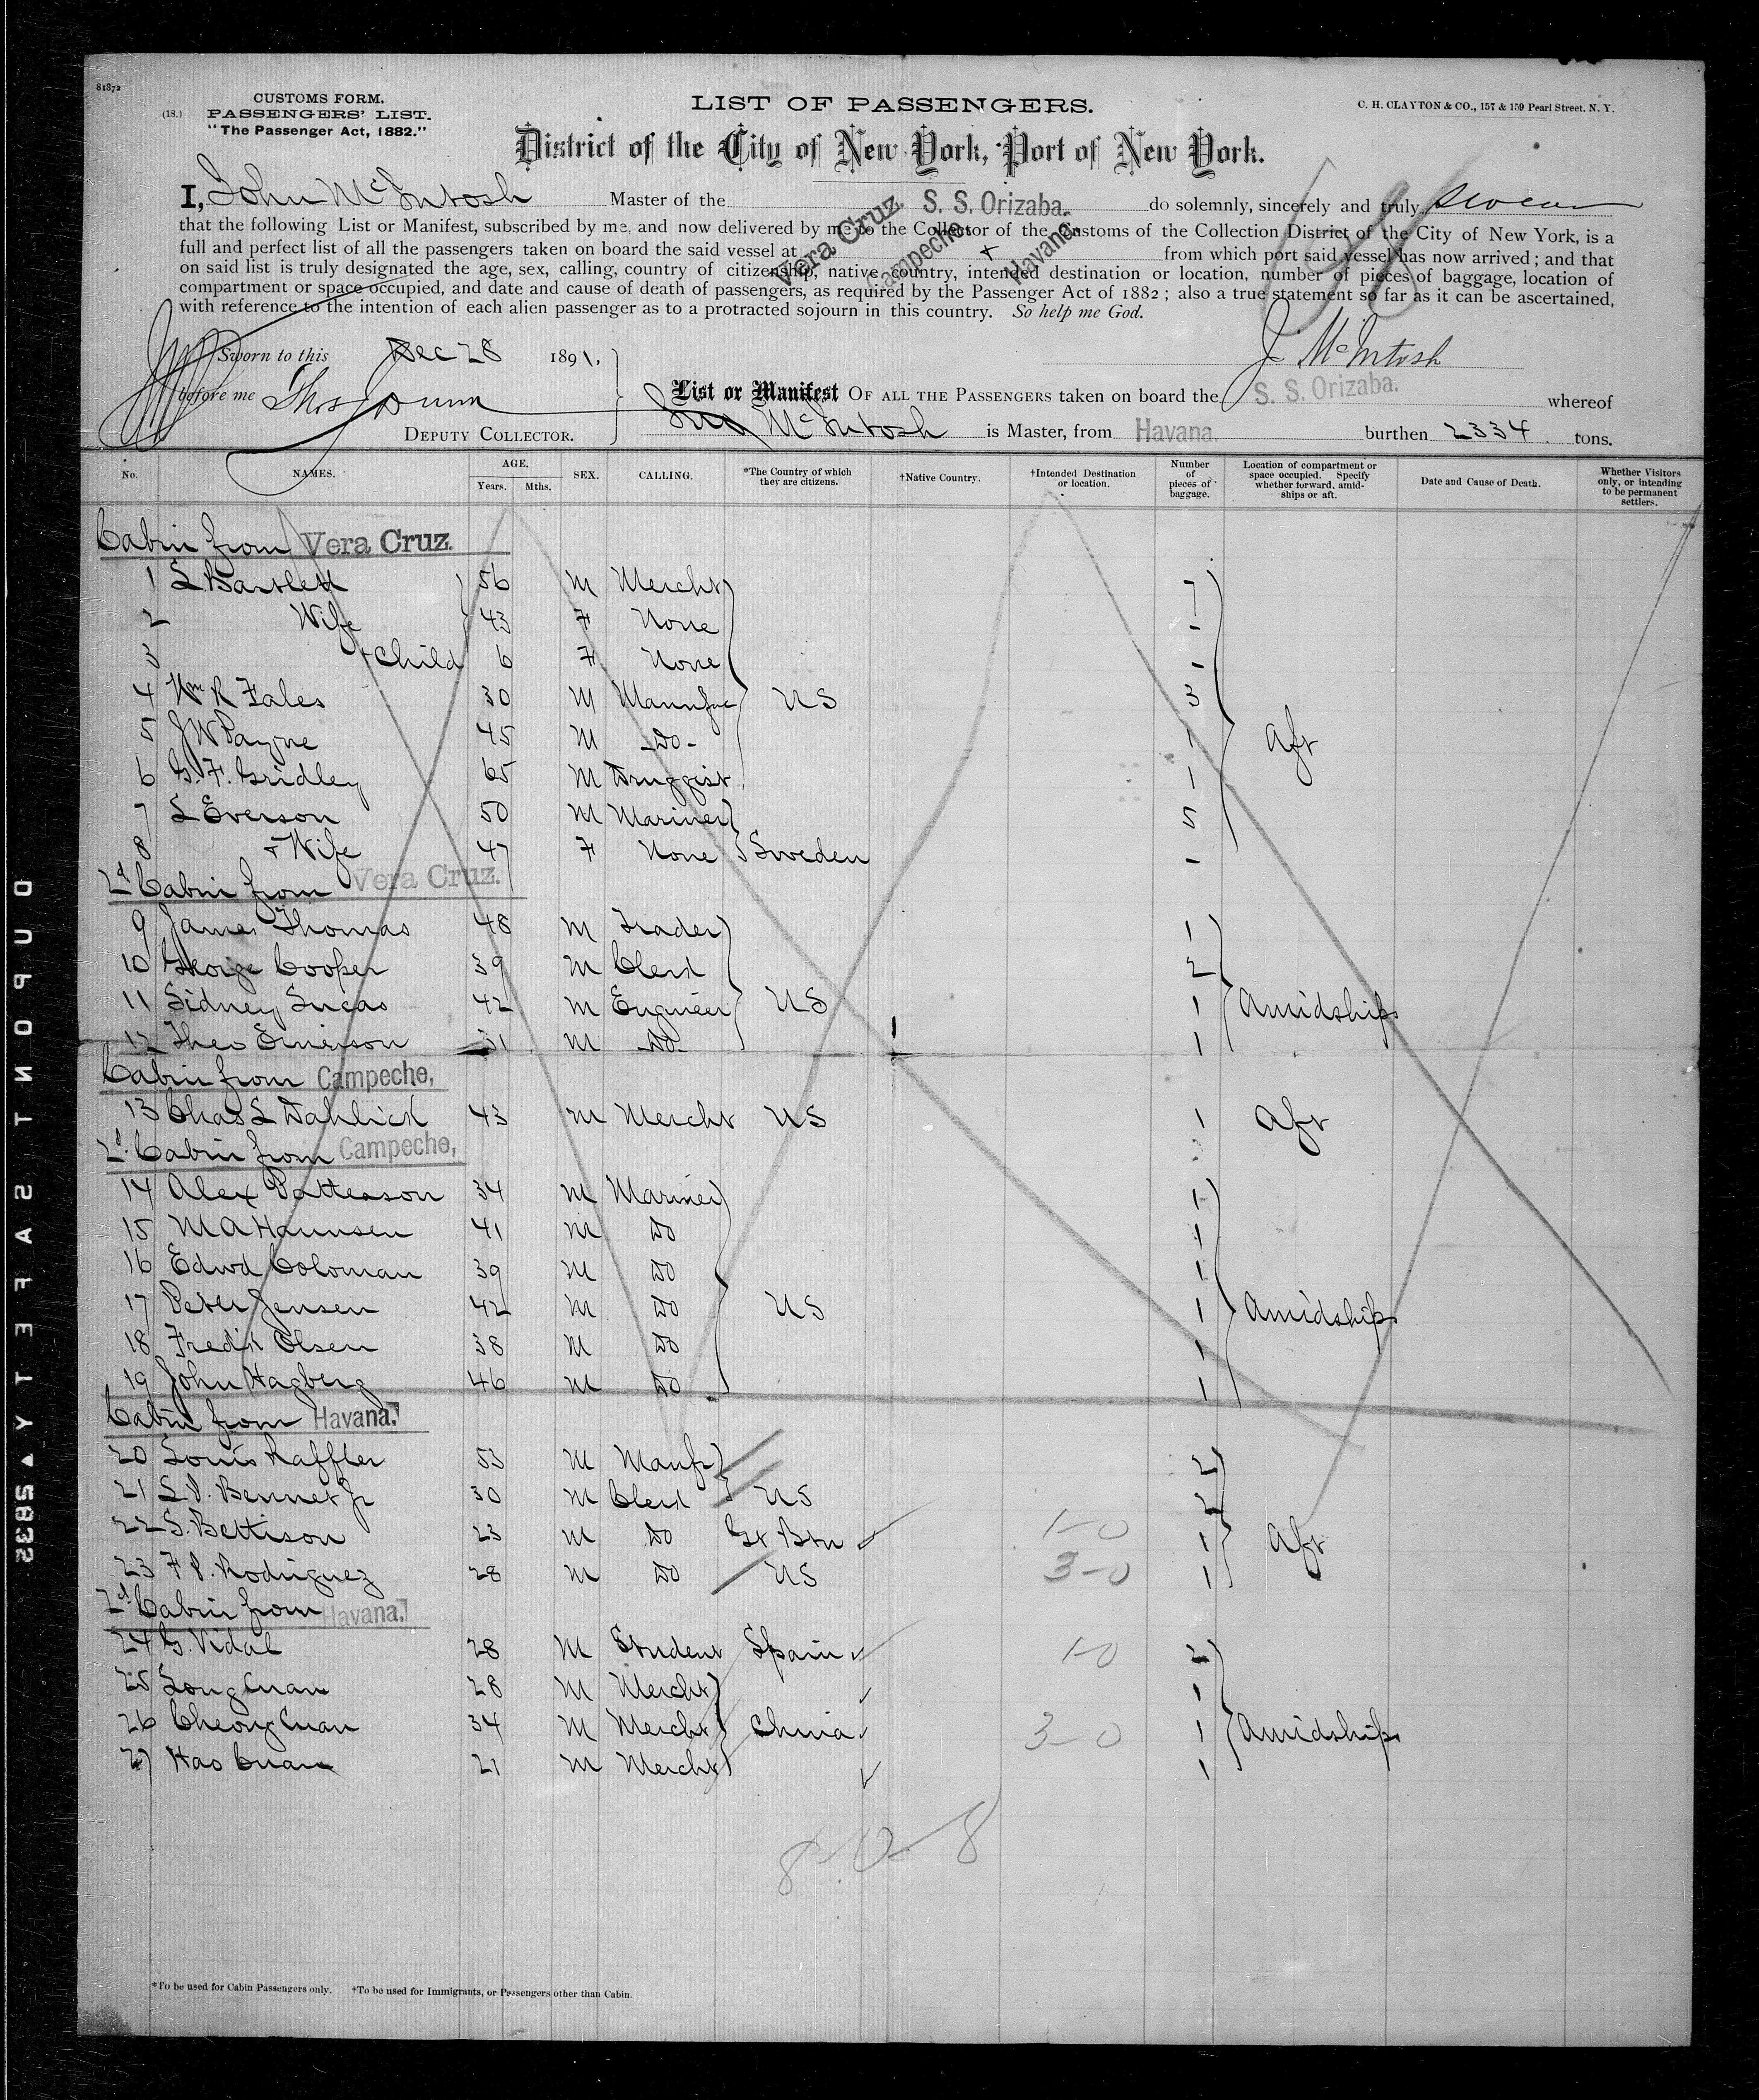 81872
CUSTOMS FORM.
(18.) PASSENGERS' LIST.
"The Passenger Act, 1882."
LIST OF PASSENGERS.
C. H. CLAYTON & CO., 157 & 159 Pearl Street. N. Y.
District of the City of New York, Port of New York.
I, John McIntosh Master of the S. S. Orizaba. do solemnly, sincerely and truly swear
that the following List or Manifest, subscribed by me, and now delivered by me to the Collector of the Customs of the Collection District of the City of New York, is a
full and perfect list of all the passengers taken on board the said vessel at Vera Cruz. Campeche + Havana. from which port said vessel has now arrived; and that
on said list is truly designated the age, sex, calling, country of citizenship, native country, intended destination or location, number of pieces of baggage, location of
compartment or space occupied, and date and cause of death of passengers, as required by the Passenger Act of 1882; also a true statement so far as it can be ascertained,
with reference to the intention of each alien passenger as to a protracted sojourn in this country. So help me God.
Sworn to this Dec 28 1891.
J McIntosh
before me Thos Dunn
DEPUTY COLLECTOR.
List or Manifest OF ALL THE PASSENGERS taken on board the S. S. Orizaba. whereof
McIntosh is Master, from Havana. burthen 2334 tons.
No. NAMES. AGE. Years. Mths. SEX. CALLING. *The Country of which they are citizens. †Native Country. †Intended Destination or location. Number of pieces of baggage. Location of compartment or space occupied. Specify whether forward, amidships or aft. Date and Cause of Death. Whether Visitors only, or intending to be permanent settlers.
Cabin from Vera Cruz.
1 L Bartlett 56 M Mercht 7
2 Wife 43 F None -
3 + Child 6 F None -
4 Wm R Fales 30 M Manufac US 3
5 J W Payne 45 M -Do- 1 Aft
6 G. F. Gridley 65 M Druggist 1
7 L Everson 50 M Mariner 5
8 + Wife 47 F None Sweden -
2d Cabin from Vera Cruz.
9 James Thomas 48 M Trader 1
10 George Cooper 39 M Clerk 2
11 Sidney Lucas 42 M Engineer US 1 Amidships
12 Theo Emerson 31 M -Do- 1
Cabin from Campeche,
13 Chas L Dahlick 43 M Mercht US 1 Aft
2d Cabin from Campeche,
14 Alex Patterson 34 M Mariner 1
15 M A Hannsen 41 M Do 1
16 Edwd Coloman 39 M Do 1
17 Peter Jensen 42 M Do US 1 Amidships
18 Fredk Olsen 38 M Do 1
19 John Hagberg 46 M Do 1
Cabin from Havana.
20 Louis Raffler 53 M Manfr 2
21 L. P. Bennet Jr 30 M Clerk US 2
22 S. Bettison 23 M Do Gt Btn 1-0 1 Aft
23 F P. Rodriguez 28 M Do US 3-0 1
2d Cabin from Havana.
24 G. Vidal 28 M Student Spain 1-0 2
25 Long Cuan 28 M Mercht 1
26 Cheong Cuan 34 M Mercht China 3-0 1 Amidships
27 Hao Cuan 21 M Mercht 1
8-0-8
*To be used for Cabin Passengers only. †To be used for Immigrants, or Passengers other than Cabin.
DUPONT SAFETY 5835